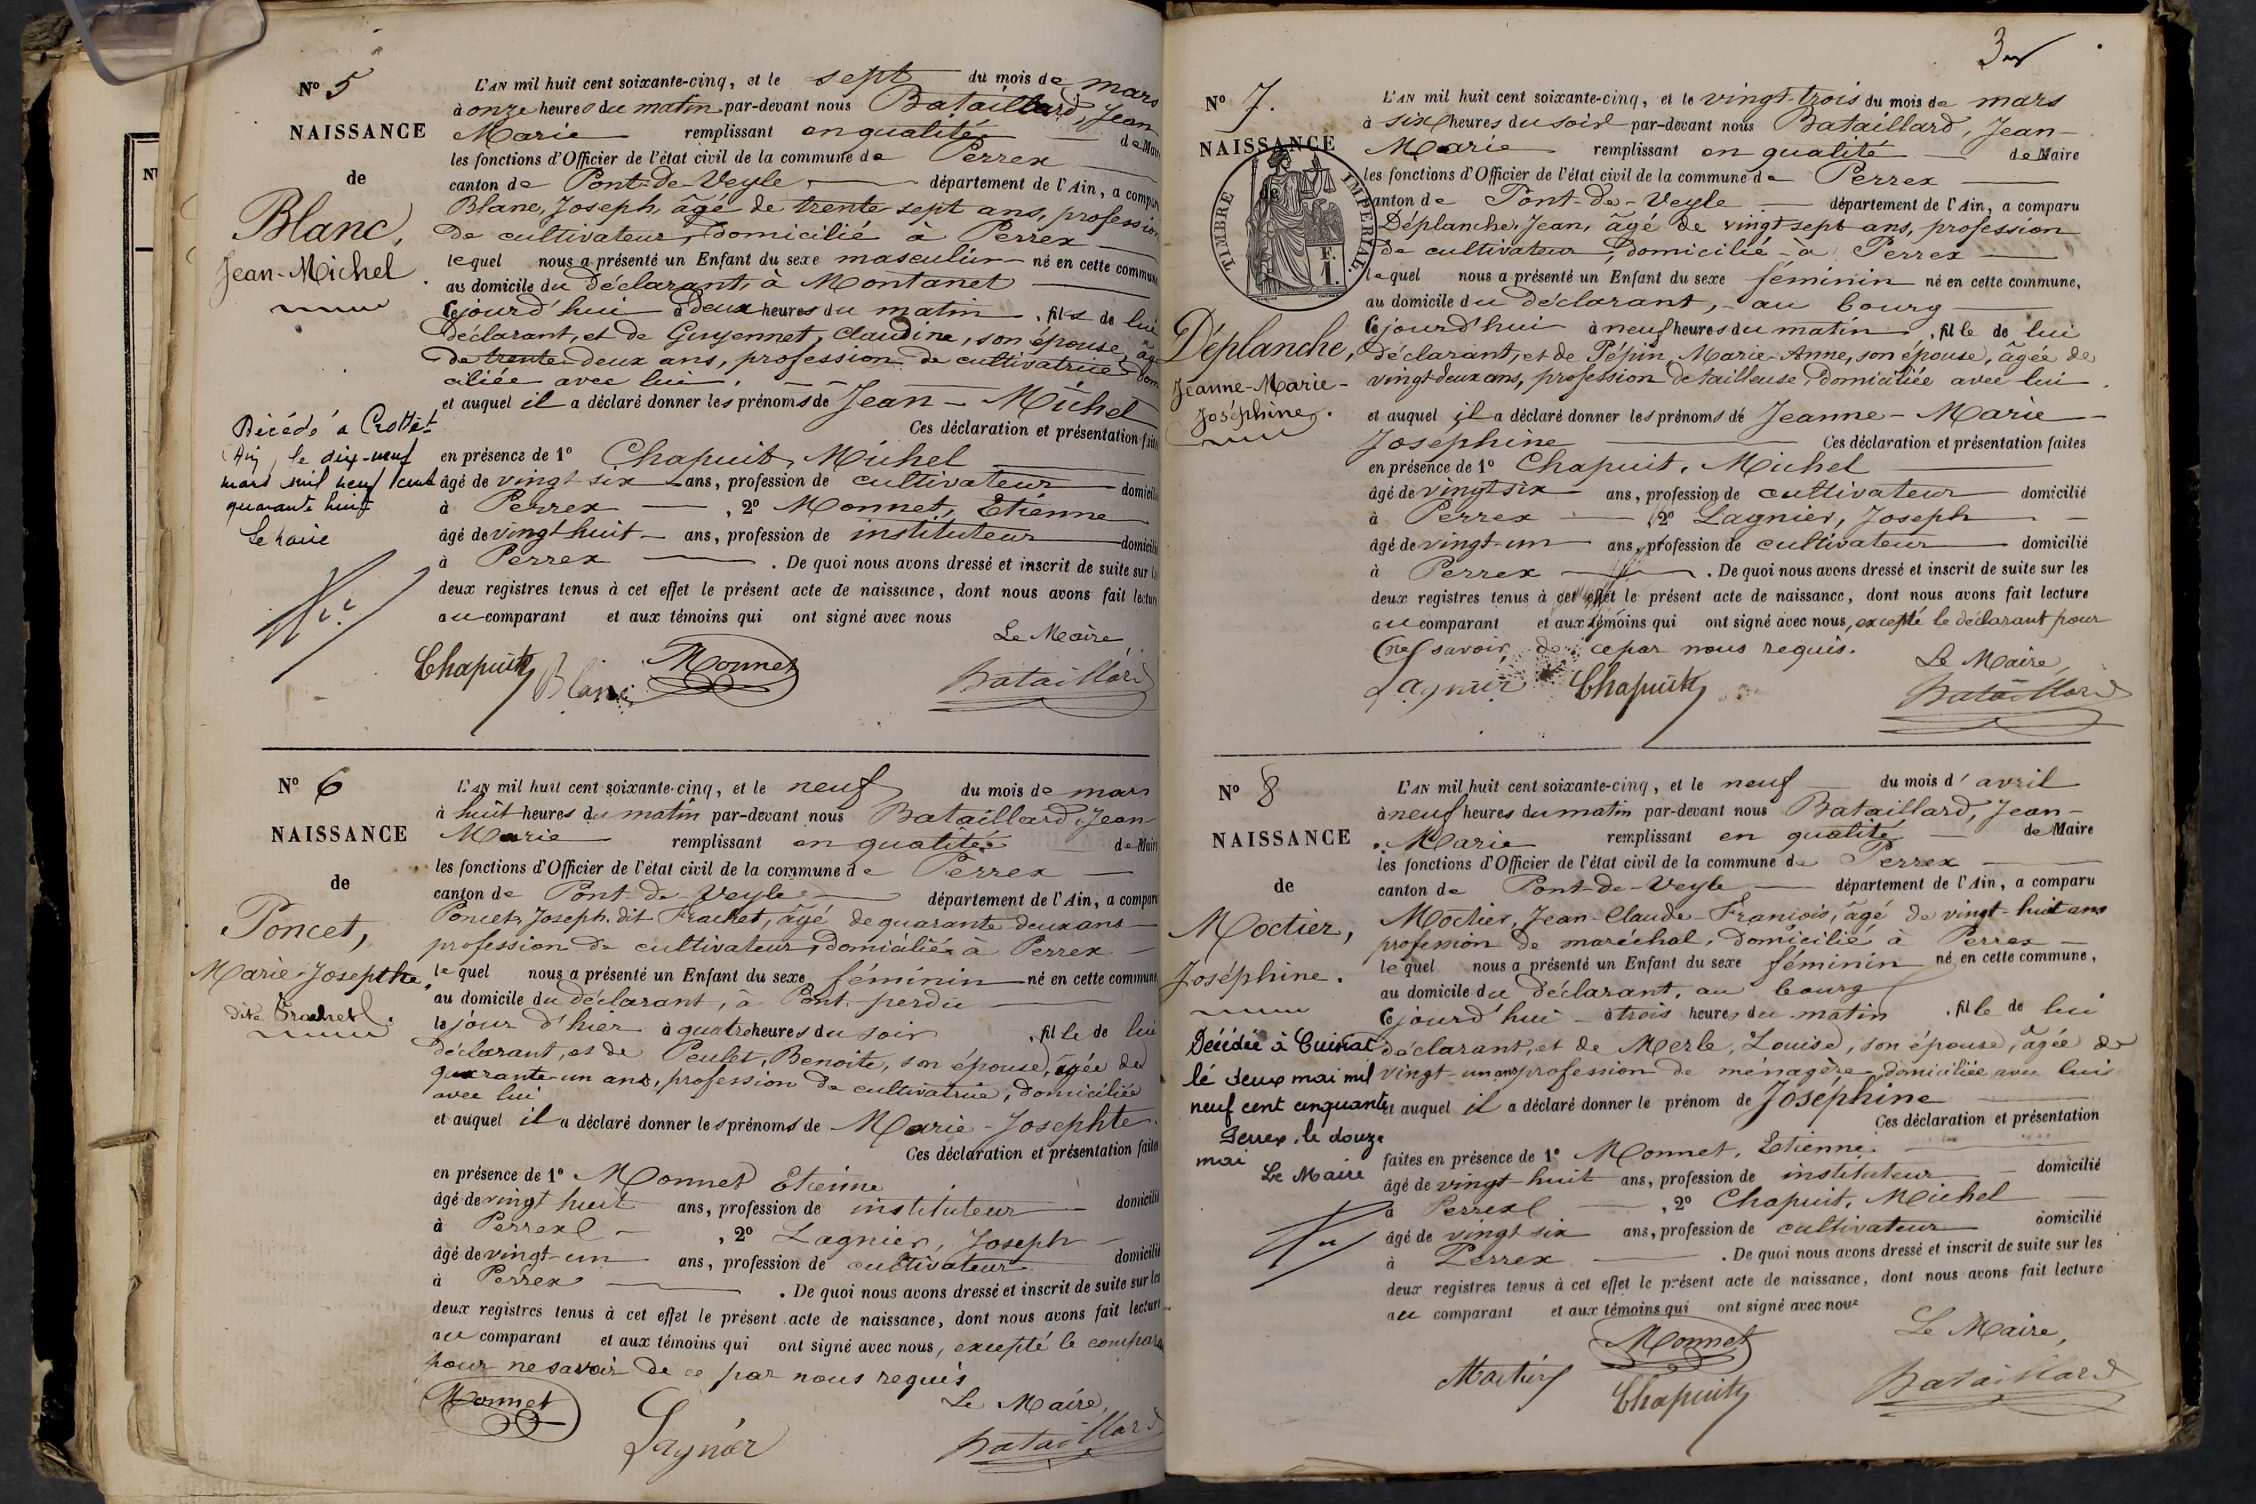 N° 5
NAISSANCE
de
Blanc,
Jean-Michel
Décédé à Crottet
Ain, le dix-neuf
mars mil neuf cent
quarante huit
Le Maire
L'AN mil huit cent soixante-cinq, et le sept du mois de mars
à onze heures du matin par-devant nous Bataillard, Jean
Marie remplissant en qualité de Mair
les fonctions d'Officier de l'état civil de la commune de Perrex
canton de Pont-de-Veyle département de l'Ain, a compar
Blanc, Joseph, âgé de trente sept ans, profession
de cultivateur, domicilié à Perrex
lequel nous a présenté un Enfant du sexe masculin né en cette commune
au domicile du déclarant, à Montanet
Cejourd'hui à deux heures du matin, fils de lui
déclarant, et de Guyennet, Claudine, son épouse, âg
de trente-deux ans, profession de cultivatrice dom
ciliée avec lui.
et auquel il a déclaré donner les prénoms de Jean-Michel
Ces déclaration et présentation faite
en présence de 1° Chapuit, Michel
âgé de vingt six ans, profession de cultivateur domicilié
à Perrex, 2° Monnet, Etienne
âgé de vingt huit ans, profession de instituteur domicilié
à Perrex. De quoi nous avons dressé et inscrit de suite sur les
deux registres tenus à cet effet le présent acte de naissance, dont nous avons fait lecture
au comparant et aux témoins qui ont signé avec nous
Le Maire
Chapuit Blanc Monnet Bataillard
N° 6
NAISSANCE
de
Poncet,
Marie-Josephte,
dite Frachet.
L'AN mil huit cent soixante-cinq, et le neuf du mois de mars
à huit heures du matin par-devant nous Bataillard, Jean
Marie remplissant en qualité de Maire
les fonctions d'Officier de l'état civil de la commune de Perrex
canton de Pont-de-Veyle département de l'Ain, a comparu
Poncet, Joseph, dit Frachet, âgé de quarante deux ans
profession de cultivateur, domicilié à Perrex
lequel nous a présenté un Enfant du sexe féminin né en cette commune
au domicile du déclarant, à Pont-perdu
le jour d'hier à quatre heures du soir, fille de lui
déclarant, et de Peulet, Benoite, son épouse, âgée de
quarante-un ans, profession de cultivatrice, domiciliée
avec lui
et auquel il a déclaré donner les prénoms de Marie-Josephte.
Ces déclaration et présentation faites
en présence de 1° Monnet Etienne
âgé de vingt huit ans, profession de instituteur domicilié
à Perrex, 2° Lagnier, Joseph
âgé de vingt-un ans, profession de cultivateur domicilié
à Perrex. De quoi nous avons dressé et inscrit de suite sur les
deux registres tenus à cet effet le présent acte de naissance, dont nous avons fait lecture
au comparant et aux témoins qui ont signé avec nous, excepté le compara
pour ne savoir de ce par nous requis
Le Maire,
Monnet Lagnier Bataillard
3
N° 7.
NAISSANCE
de
TIMBRE IMPERIAL
F. 1.
Déplanche,
Jeanne-Marie-
Joséphine.
L'AN mil huit cent soixante-cinq, et le vingt-trois du mois de mars
à six heures du soir par-devant nous Bataillard, Jean-
Marie remplissant en qualité de Maire
les fonctions d'Officier de l'état civil de la commune de Perrex
canton de Pont-de-Veyle département de l'Ain, a comparu
Déplanche, Jean, âgé de vingt-sept ans, profession
de cultivateur, domicilié à Perrex
lequel nous a présenté un Enfant du sexe féminin né en cette commune,
au domicile du déclarant, au bourg
Cejourd'hui à neuf heures du matin, fille de lui
déclarant, et de Pépin, Marie-Anne, son épouse, âgée de
vingt-deux ans, profession de tailleuse, domiciliée avec lui.
et auquel il a déclaré donner les prénoms de Jeanne-Marie-
Josephine Ces déclaration et présentation faites
en présence de 1° Chapuit, Michel
âgé de vingt six ans, profession de cultivateur domicilié
à Perrex, 2° Lagnier, Joseph
âgé de vingt-un ans, profession de cultivateur domicilié
à Perrex. De quoi nous avons dressé et inscrit de suite sur les
deux registres tenus à cet effet le présent acte de naissance, dont nous avons fait lecture
au comparant et aux témoins qui ont signé avec nous, excepté le déclarant pour
ne savoir de ce par nous requis.
Le Maire,
Lagnier Chapuit Bataillard
N° 8
NAISSANCE
de
Moctier,
Joséphine.
Décédée à Cuisiat
le deux mai mil
neuf cent cinquante
Perrex, le douze
mai
Le Maire
L'AN mil huit cent soixante-cinq, et le neuf du mois d'avril
à neuf heures du matin par-devant nous Bataillard, Jean-
Marie remplissant en qualité de Maire
les fonctions d'Officier de l'état civil de la commune de Perrex
canton de Pont-de-Veyle département de l'Ain, a comparu
Moctier, Jean-Claude-François, âgé de vingt-huit ans
profession de maréchal, domicilié à Perrex
lequel nous a présenté un Enfant du sexe féminin né en cette commune,
au domicile du déclarant, au bourg
Cejourd'hui à trois heures du matin, fille de lui
déclarant, et de Merle, Louise, son épouse, âgée de
vingt-un ans profession de ménagère, domiciliée avec lui
et auquel il a déclaré donner le prénom de Joséphine
Ces déclaration et présentation
faites en présence de 1° Monnet, Etienne
âgé de vingt-huit ans, profession de instituteur domicilié
à Perrex, 2° Chapuit, Michel
âgé de vingt six ans, profession de cultivateur domicilié
à Perrex. De quoi nous avons dressé et inscrit de suite sur les
deux registres tenus à cet effet le présent acte de naissance, dont nous avons fait lecture
au comparant et aux témoins qui ont signé avec nous
Le Maire,
Monnet
Moctier Chapuit Bataillard